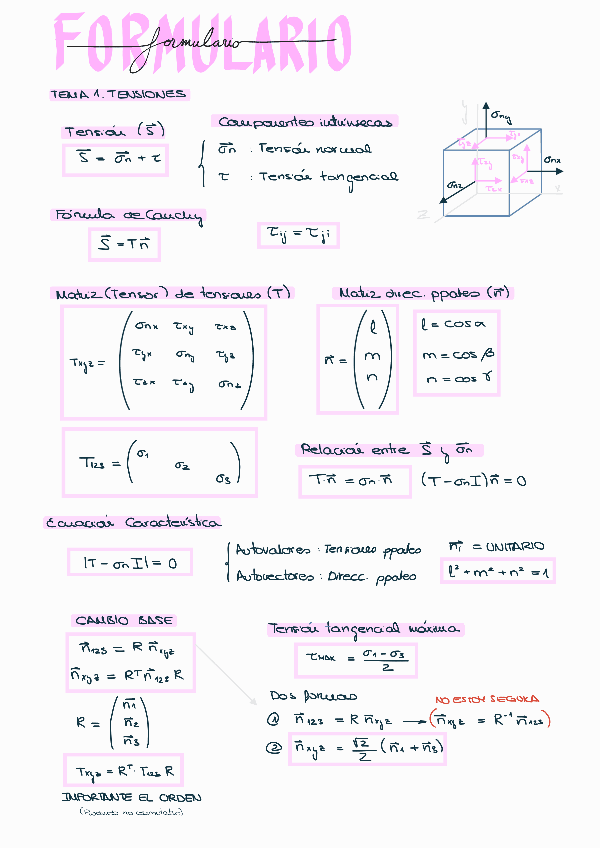 FORMULARIO
formulario
TEMA 1. TENSIONES
Tensión (S⃗)
S⃗ = σ⃗n + τ
Componentes intrínsecas
σ⃗n : Tensión normal
τ : Tensión tangencial
y
σny
τyz
τyx
τxy
σnx
τzy
τxz
τzx
σnz
x
z
Fórmula de Cauchy
S⃗ = T n⃗
τij = τji
Matriz (Tensor) de tensiones (T)
Txyz =
σnx τxy τxz
τyx σny τyz
τzx τzy σnz
T123 =
σ1
σ2
σ3
Matriz direc. ppales (n⃗)
n⃗ =
l
m
n
l = cos α
m = cos β
n = cos γ
Relación entre S⃗ y σ⃗n
T·n⃗ = σn·n⃗ (T - σn I) n⃗ = 0
Ecuación Característica
|T - σn I| = 0
Autovalores : Tensiones ppales
Autovectores : Direcc. ppales
n⃗i = UNITARIO
l² + m² + n² = 1
CAMBIO BASE
n⃗123 = R n⃗xyz
n⃗xyz = Rᵀ n⃗123 R
R =
n⃗1
n⃗2
n⃗3
Txyz = Rᵀ · T123 R
IMPORTANTE EL ORDEN
(Producto no conmutativo)
Tensión tangencial máxima
τMAX = (σ1 - σ3) / 2
Dos formas
NO ESTOY SEGURA
① n⃗123 = R n⃗xyz → (n⃗xyz = R⁻¹ n⃗123)
② n⃗xyz = √2/2 (n⃗1 + n⃗3)